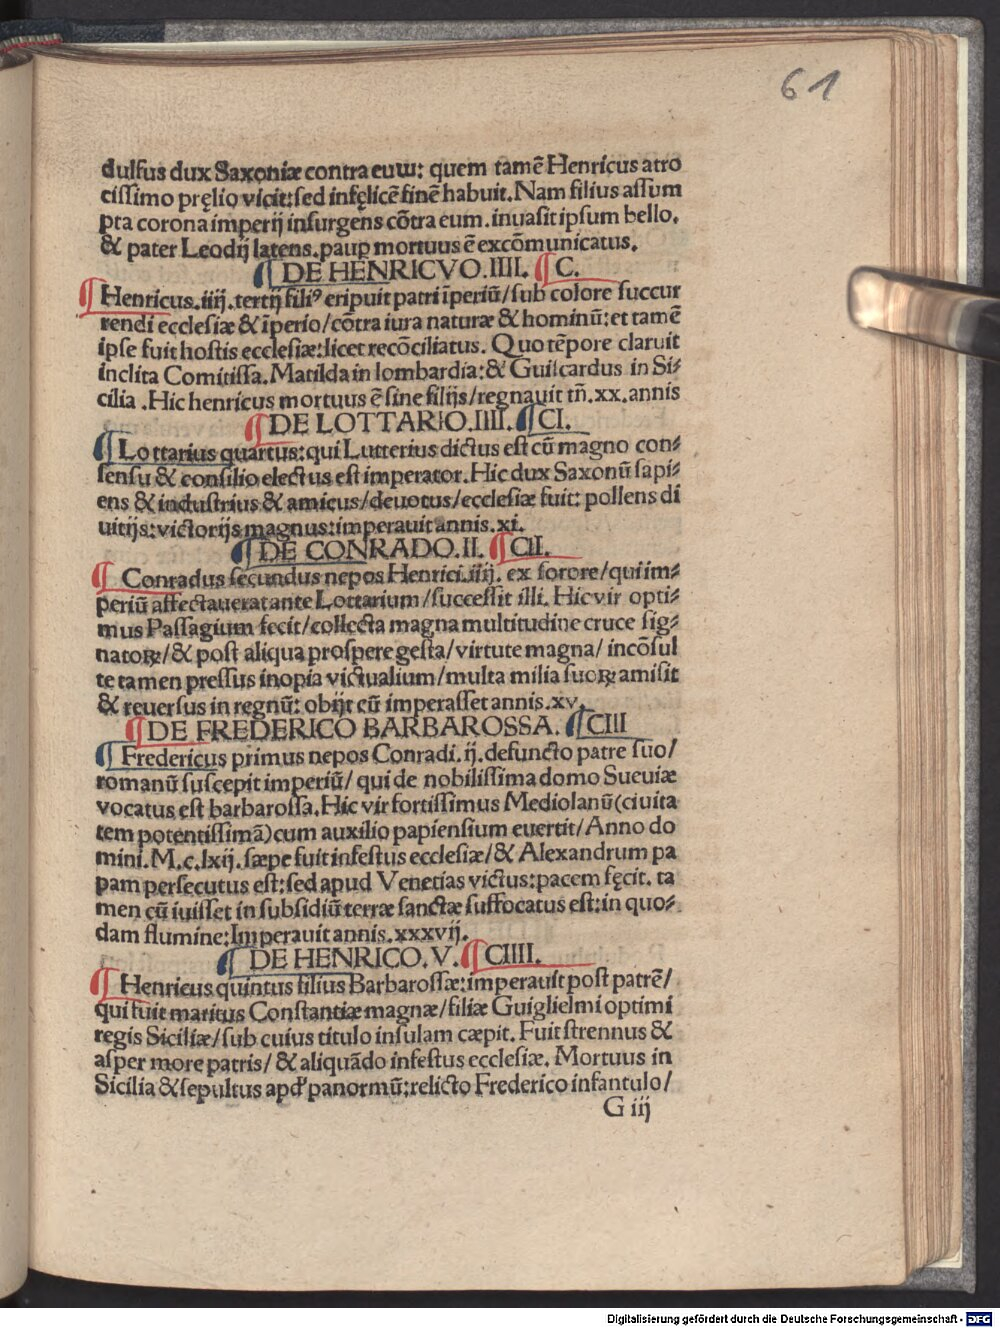 61
dulfus dux Saxoniæ contra euɯ: quem tamē Henricus atro
cissimo pręlio vicit: sed infęlicē finē habuit. Nam filius assum
pta corona imperij insurgens cōtra eum. inuasit ipsum bello.
& pater Leodij latens. paup mortuus ē excōmunicatus.
¶ DE HENRICVO. IIII. ¶ C.
¶ Henricus .iiij. tertij filiꝰ eripuit patri īperiū/ sub colore succur
rendi ecclesiæ & īperio/ cōtra iura naturæ & hominū: et tamē
ipse fuit hostis ecclesiæ: licet recōciliatus. Quo tēpore claruit
inclita Comitissa. Matilda in lombardia: & Guiscardus in Si⸗
cilia . Hic henricus mortuus ē sine filijs/ regnauit tñ. xx. annis
¶ DE LOTTARIO. IIII. ¶ CI.
¶ Lottarius quartus: qui Lutterius dictus est cū magno con⸗
sensu & consilio electus est imperator. Hic dux Saxonū sapi⸗
ens & industrius & amicus/ deuotus/ ecclesiæ fuit: pollens di
uitijs: victorijs magnus: imperauit annis. xi.
¶ DE CONRADO. II. ¶ CII.
¶ Conradus secundus nepos Henrici. iiij. ex sorore/ qui im⸗
periū affectauerat ante Lottarium/ successit illi. Hic vir opti⸗
mus Passagium fecit/ collecta magna multitudine cruce sig⸗
natoꝝ/ & post aliqua prospere gesta/ virtute magna/ incōsul
te tamen pressus inopia victualium/ multa milia suoꝝ amisit
& reuersus in regnū: obijt cū imperasset annis. xv.
¶ DE FREDERICO BARBAROSSA. ¶ CIII
¶ Fredericus primus nepos Conradi. ij. defuncto patre suo/
romanū suscepit imperiū/ qui de nobilissima domo Sueuiæ
vocatus est barbarossa. Hic vir fortissimus Mediolanū (ciuita
tem potentissimā) cum auxilio papiensium euertit/ Anno do
mini. M. c. lxij. sæpe fuit infestus ecclesiæ/ & Alexandrum pa
pam persecutus est: sed apud Venetias victus: pacem fęcit. ta
men cū iuisset in subsidiū terræ sanctæ suffocatus est: in quo⸗
dam flumine: Imperauit annis. xxxvij.
¶ DE HENRICO. V. ¶ CIIII.
¶ Henricus quintus filius Barbarossæ: imperauit post patrē/
qui fuit maritus Constantiæ magnæ/ filiæ Guiglielmi optimi
regis Siciliæ/ sub cuius titulo insulam cæpit. Fuit strennus &
asper more patris/ & aliquādo infestus ecclesiæ. Mortuus in
Sicilia & sepultus apđ panormū: relicto Frederico infantulo/
G iij
Digitalisierung gefördert durch die Deutsche Forschungsgemeinschaft - DFG